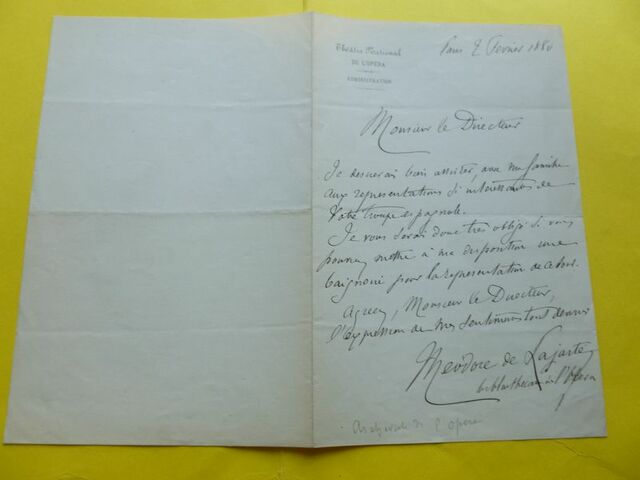 Théâtre National
DE L'OPÉRA
ADMINISTRATION
Paris 2 Fevrier 1880
Monsieur le Directeur
Je desirerais bien assister, avec ma famille
aux representations si interessantes de
Votre troupe espagnole.
Je vous serai donc très obligé si vous
pouviez mettre à ma disposition une
baignoire pour la representation de ce soir.
Agreez, Monsieur le Directeur,
l'expression de mes sentiments tout devoués
Theodore de Lajarte
bibliothecaire de l'Opera
de l'opera